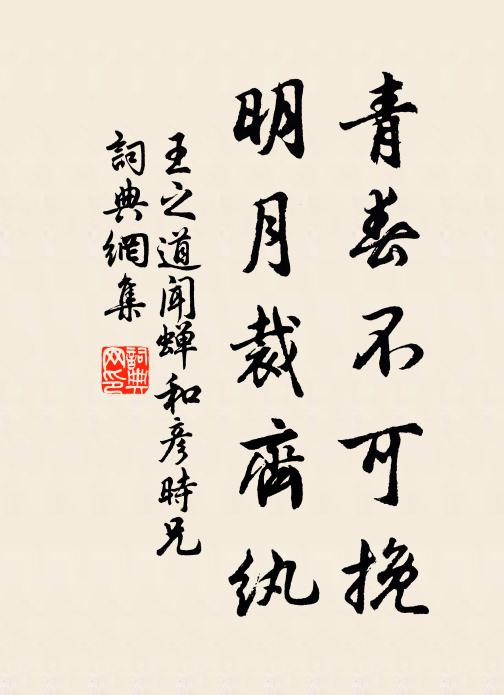 青春不可挽
明月裁齊纨
王之道闻蝉和彦時兄
詞典網集
詞典网印